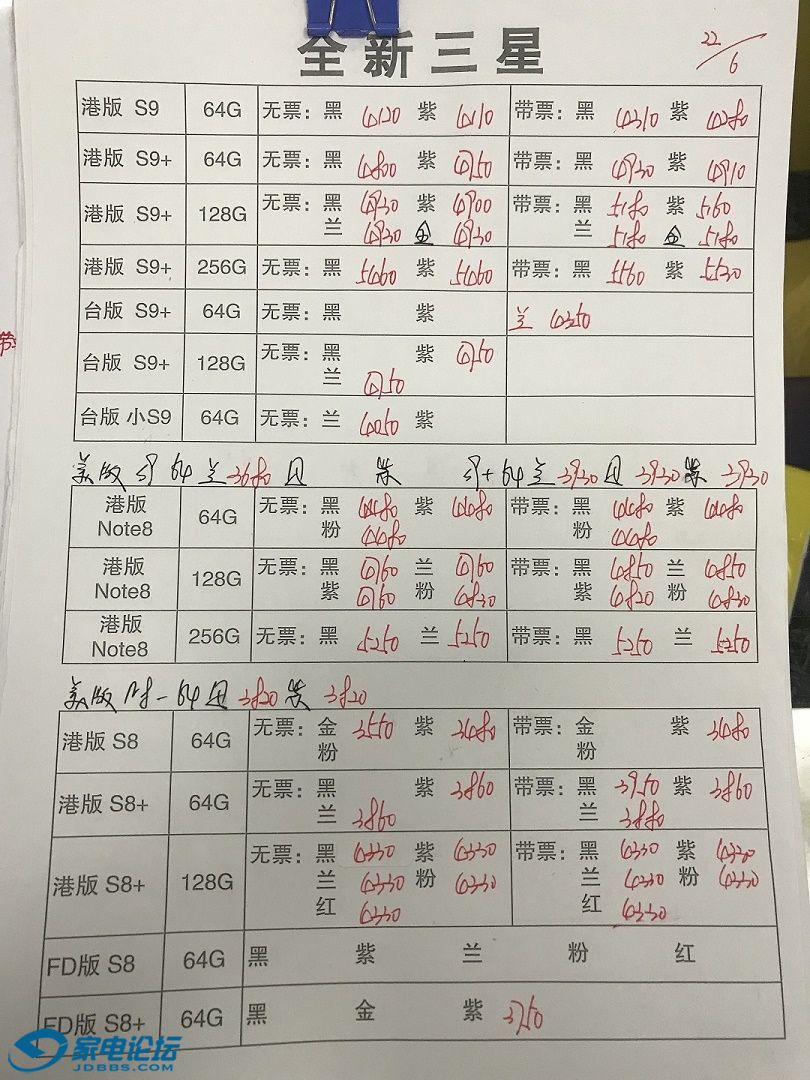 全新三星
22/6
港版 S9 64G 无票：黑 4120 紫 4110 带票：黑 4310 紫 4280
港版 S9+ 64G 无票：黑 4800 紫 4750 带票：黑 4930 紫 4910
港版 S9+ 128G 无票：黑 4930 紫 4900 带票：黑 5180 紫 5160
兰 4930 金 4930 兰 5180 金 5180
港版 S9+ 256G 无票：黑 5460 紫 5460 带票：黑 5560 紫 5530
台版 S9+ 64G 无票：黑 紫 兰 4350
台版 S9+ 128G 无票：黑 紫 4750
兰 4750
台版 小S9 64G 无票：兰 4050 紫
美版 S9 64 兰 3680 黑 紫 S9+ 64 兰 3930 黑 3930 紫 3930
港版 Note8 64G 无票：黑 4480 紫 4480 带票：黑 4480 紫 4480
粉 4480 粉 4480
港版 Note8 128G 无票：黑 4760 兰 4760 带票：黑 4850 兰 4850
紫 4760 粉 4830 紫 4820 粉 4830
港版 Note8 256G 无票：黑 5250 兰 5250 带票：黑 5250 兰 5250
美版 64 黑 3820 紫 3820
港版 S8 64G 无票：金 3550 紫 3480 带票：金 紫 3480
粉 粉
港版 S8+ 64G 无票：黑 紫 3860 带票：黑 3950 紫 3860
兰 3860 兰 3880
港版 S8+ 128G 无票：黑 4330 紫 4330 带票：黑 4330 紫 4330
兰 4330 粉 4330 兰 4330 粉 4330
红 4330 红 4330
FD版 S8 64G 黑 紫 兰 粉 红
FD版 S8+ 64G 黑 金 紫 3750
家电论坛
JDBBS.COM